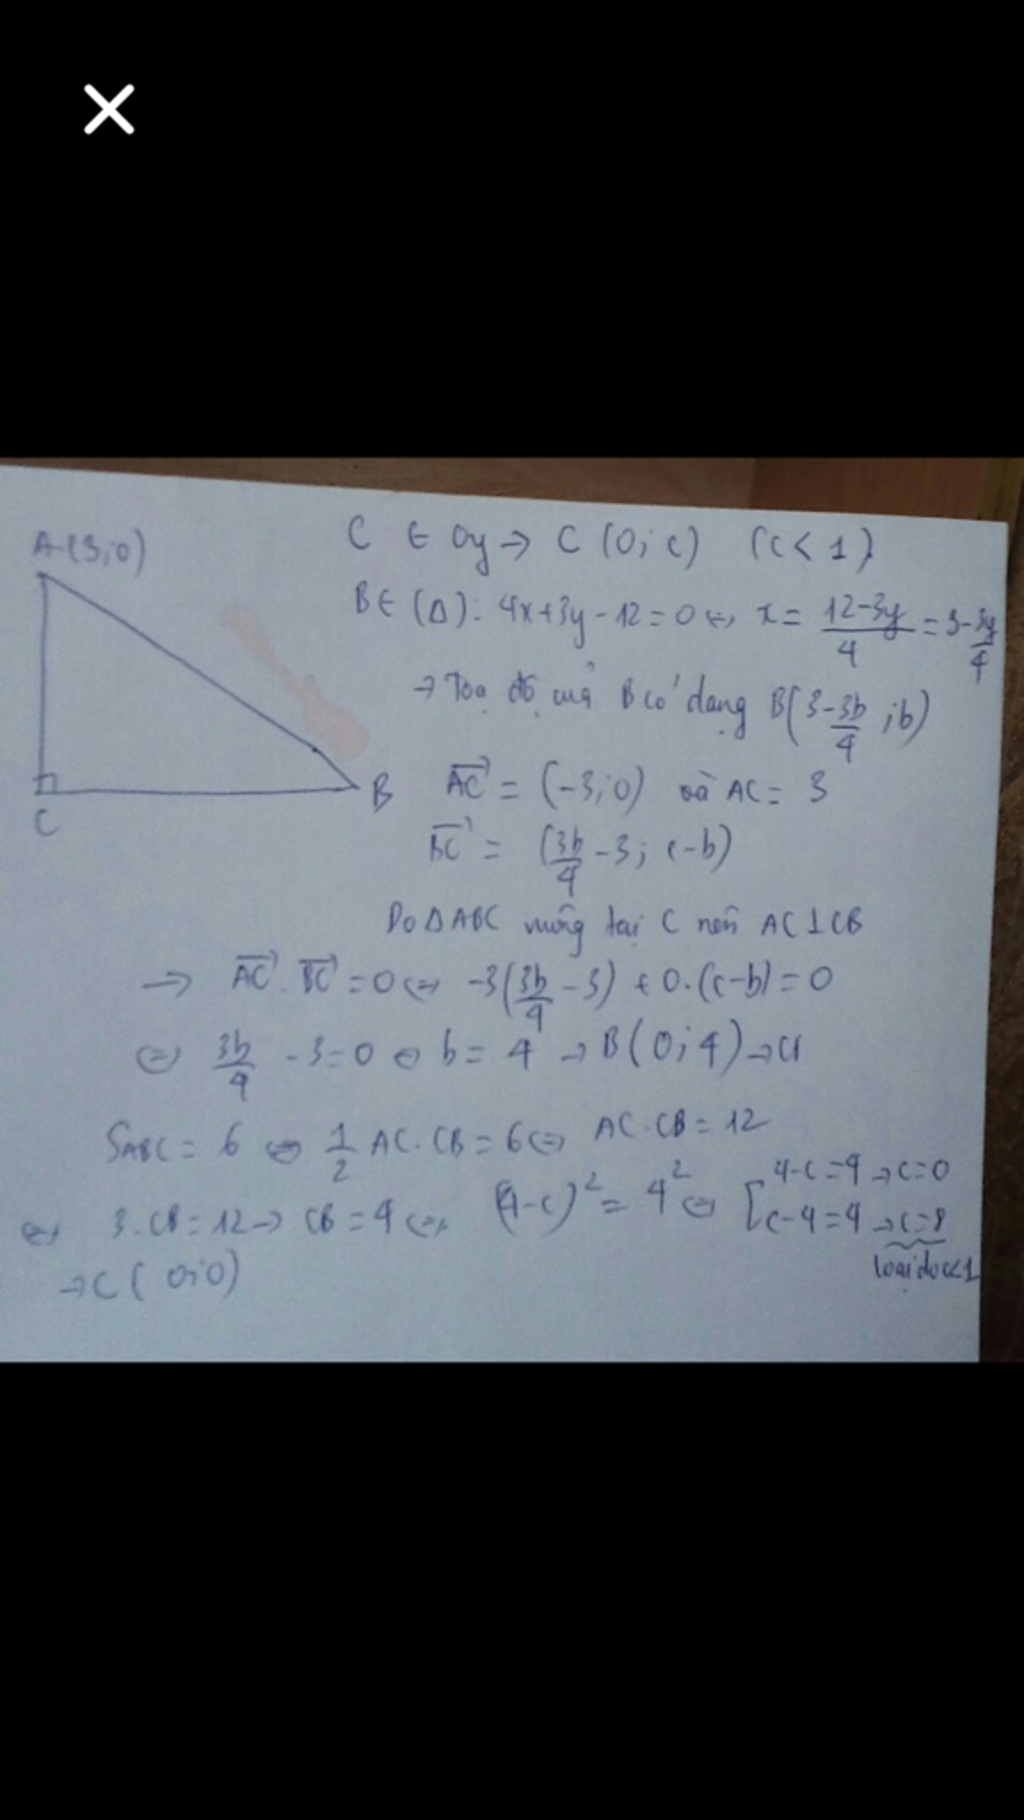 A(3;0)
C
B
C ∈ Oy → C (0; c) (c < 1)
B ∈ (Δ): 4x+3y-12=0 ⇔ x = \frac{12-3y}{4} = 3-\frac{3y}{4}
→ Toạ độ của B có dạng B(3-\frac{3b}{4} ;b)
\overrightarrow{AC} = (-3;0) và AC = 3
\overrightarrow{BC} = (\frac{3b}{4} -3; c-b)
Do ΔABC vuông tại C nên AC⊥CB
→ \overrightarrow{AC}.\overrightarrow{BC} = 0 ⇔ -3(\frac{3b}{4} -3) + 0.(c-b) = 0
⇔ \frac{3b}{4} -3=0 ⇔ b= 4 → B(0;4) →
S_{ABC} = 6 ⇔ \frac{1}{2} AC.CB = 6 ⇔ AC.CB = 12
⇔ 3.CB = 12 → CB = 4 ⇔ (4-c)^2 = 4^2 ⇔ [4-c=4 → c=0
c-4=4 → c=8
loại do c<1
→ C( 0;0)